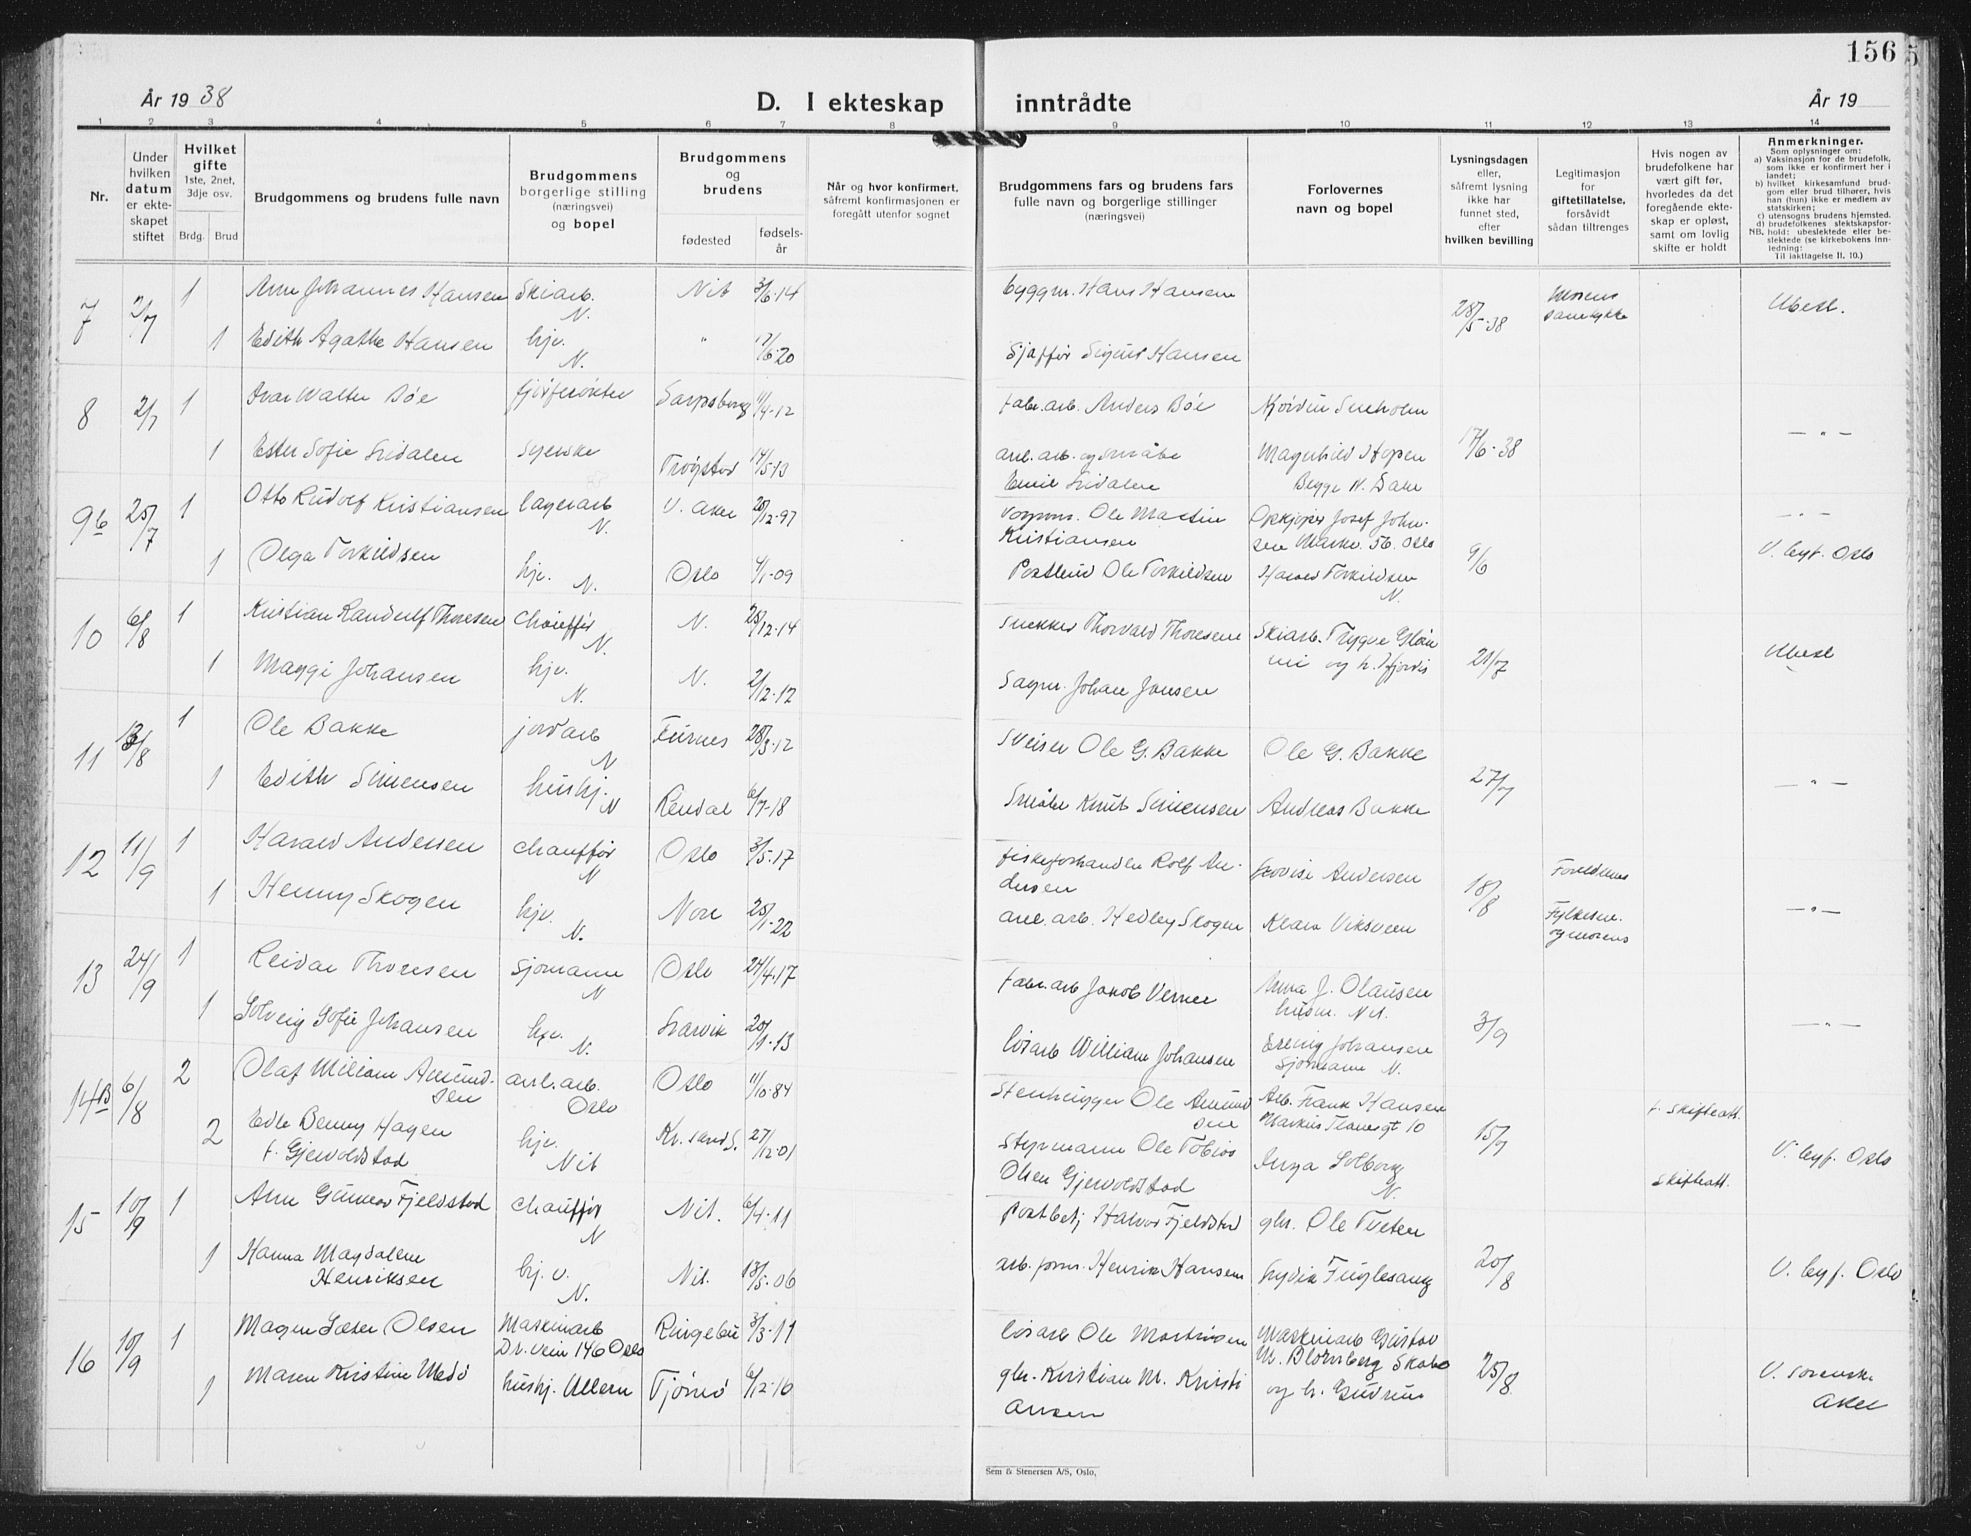 156
År 19 38
D. I ekteskap inntrådte
År 19
1 2 3 4 5 6 7 8 9 10 11 12 13 14
Nr.
Under hvilken datum er ekteskapet stiftet
Hvilket gifte
1ste, 2net, 3dje osv.
Brdg. Brud
Brudgommens og brudens fulle navn
Brudgommens borgerlige stilling (næringsvei) og bopel
Brudgommens og brudens
fødested
fødsels-år
Når og hvor konfirmert, såfremt konfirmasjonen er foregått utenfor sognet
Brudgommens fars og brudens fars fulle navn og borgerlige stillinger (næringsvei)
Forlovernes navn og bopel
Lysningsdagen eller, såfremt lysning ikke har funnet sted, efter hvilken bevilling
Legitimasjon for giftetillatelse, forsåvidt sådan tiltrenges
Hvis nogen av brudefolkene har vært gift før, hvorledes da det foregående ekteskap er opløst, samt om lovlig skifte er holdt
Anmerkninger.
Som oplysninger om:
a) Vaksinasjon for de brudefolk, som ikke er konfirmert her i landet;
b) hvilket kirkesamfund brudgom eller brud tilhører, hvis han (hun) ikke er medlem av statskirken;
c) utensogns brudens hjemsted.
d) brudefolkenes slektskapsforhold: ubeslektede eller beslektede (se kirkebokens innledning:
NB. Til iakttagelse II. 10.)
7 2/7 1 Arne Johannes Hansen Skiarb. N. Nit 3/6-14 byggm. Hans Hansen 28/5-38 Morens samtykke Ubesl.
1 Edith Agathe Hansen hjv. N. " 17/6-20 Sjåffør Sigurd Hansen
8 2/7 1 Ivar Walter Bøe fjørfrøkter Sarpsborg 11/4-12 fabr.arb. Anders Bøe 17/6-38 — " —
1 Ester Sofie syerske Trøgstad 14/5-13 anl. arb. og småbr. Emil Magnhild Hopen
Begge N.
9b 25/7 1 Otto Rudolf Kristiansen lagerarb N. V. Aker 20/12-97 Ole Martin Kristiansen Opkjøper Josef Johnsen Markv. 56. Oslo 9/6 — " —
1 Olga Torkildsen hjv. N. Oslo 4/1-09 Postbud Ole Torkildsen Harald Torkildsen N. V. byf. Oslo
10 6/8 1 Kristian Randulf Thoresen Chauffør N. N. 25/12-14 Snekker Thorvald Thoresen Skiarb. Trygve og h. Hjørdis 21/7 Ubesl
1 Maggi Johansen hjv. N. N. 2/12-12 Sagm. Johan Jansen
11 13/8 1 Ole Bakke jordarb N 28/3-12 Sveiser Ole G. Bakke Ole G. Bakke 27/7 — " —
1 Edith Simensen hushj. N Rendal 6/7-18 Småbr Knut Simensen Andreas Bakke
12 11/9 1 Harald Andersen chauffør N Oslo 3/5-17 fiskeforhandler Rolf Andersen Andersen 18/8 Foreldrenes
1 Henny Skogen hjv. N. Nore 25/1-22 anl. arb. Hedley Skogen Klara Viksveen Fylkesm. og morens — " —
13 24/9 1 Reidar Thoresen sjømann N Oslo 24/4-17 fabr.arb Jakob Verner Anna J. Olausen husm. Nit. 3/9 — " —
1 Solveig Sofie Johansen hjv. N. 20/1-13 løsarb William Johansen Erling Johansen Sjømann N.
14B 6/8 2 Olaf William Amundsen anl. arb. Oslo Oslo 11/10-84 Stenhugger Ole Amundsen Arb. Frank Hansen Markus Thranesgt 10 15/7 f. skifteatt.
2 Edle Benny Hagen f. Gjervoldstad hjv. Nit Kr.sand S. 27/12-01 Styrmann Ole Tobias Olsen Gjervoldstad Inga Solberg N. skifteatt. V. byf. Oslo
15 10/9 1 Arne Gunnar Fjeldstad chauffør N Nit. 6/4-11 Postbetj Halvor Fjeldstad gbr. Ole Tveten 20/8
1 Hanna Magdalene Henriksen hj. v. N. Nit. 13/5-06 arb. form. Henrik Hansen Lydia Fuglesang V. byf. Oslo
16 10/9 1 Magne Sæter Olsen Maskinarb Dr. vein 146 Oslo Ringebu 3/3-11 løsarb Ole Martinsen Maskinarb Gustav M. Blomberg og h. Gudrun 25/8
1 Maren Kristine Medø hushj. Ullern Tjømø 6/12-10 gbr. Kristian M. Kristiansen V. sorensk. Aker
Sem & Stenersen A/S, Oslo,